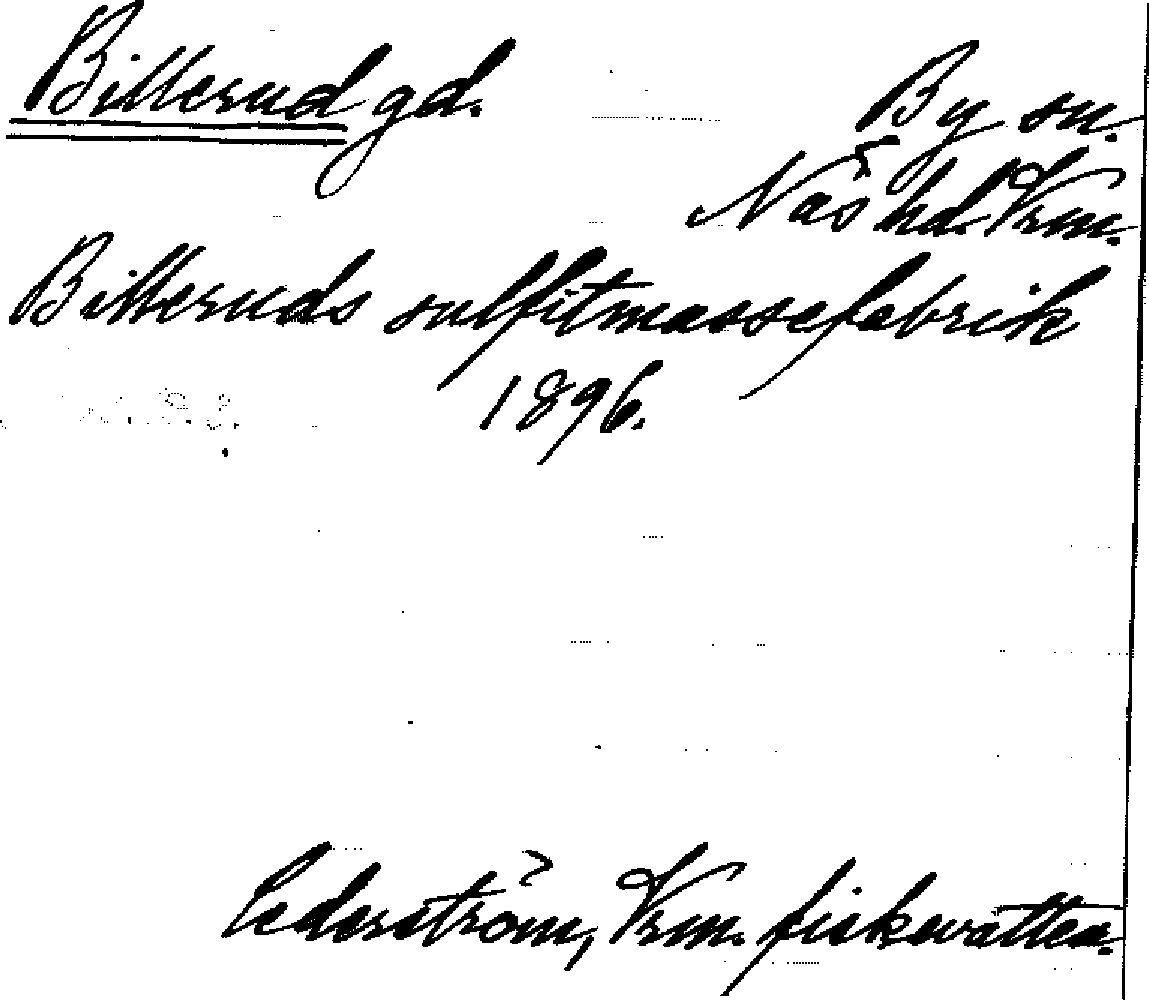 Billerud gd.
By sn.
Näs hd. Vrm.
Billeruds sulfitmassefabrik
1896.
Cederström, Vrm. fiskevatten.